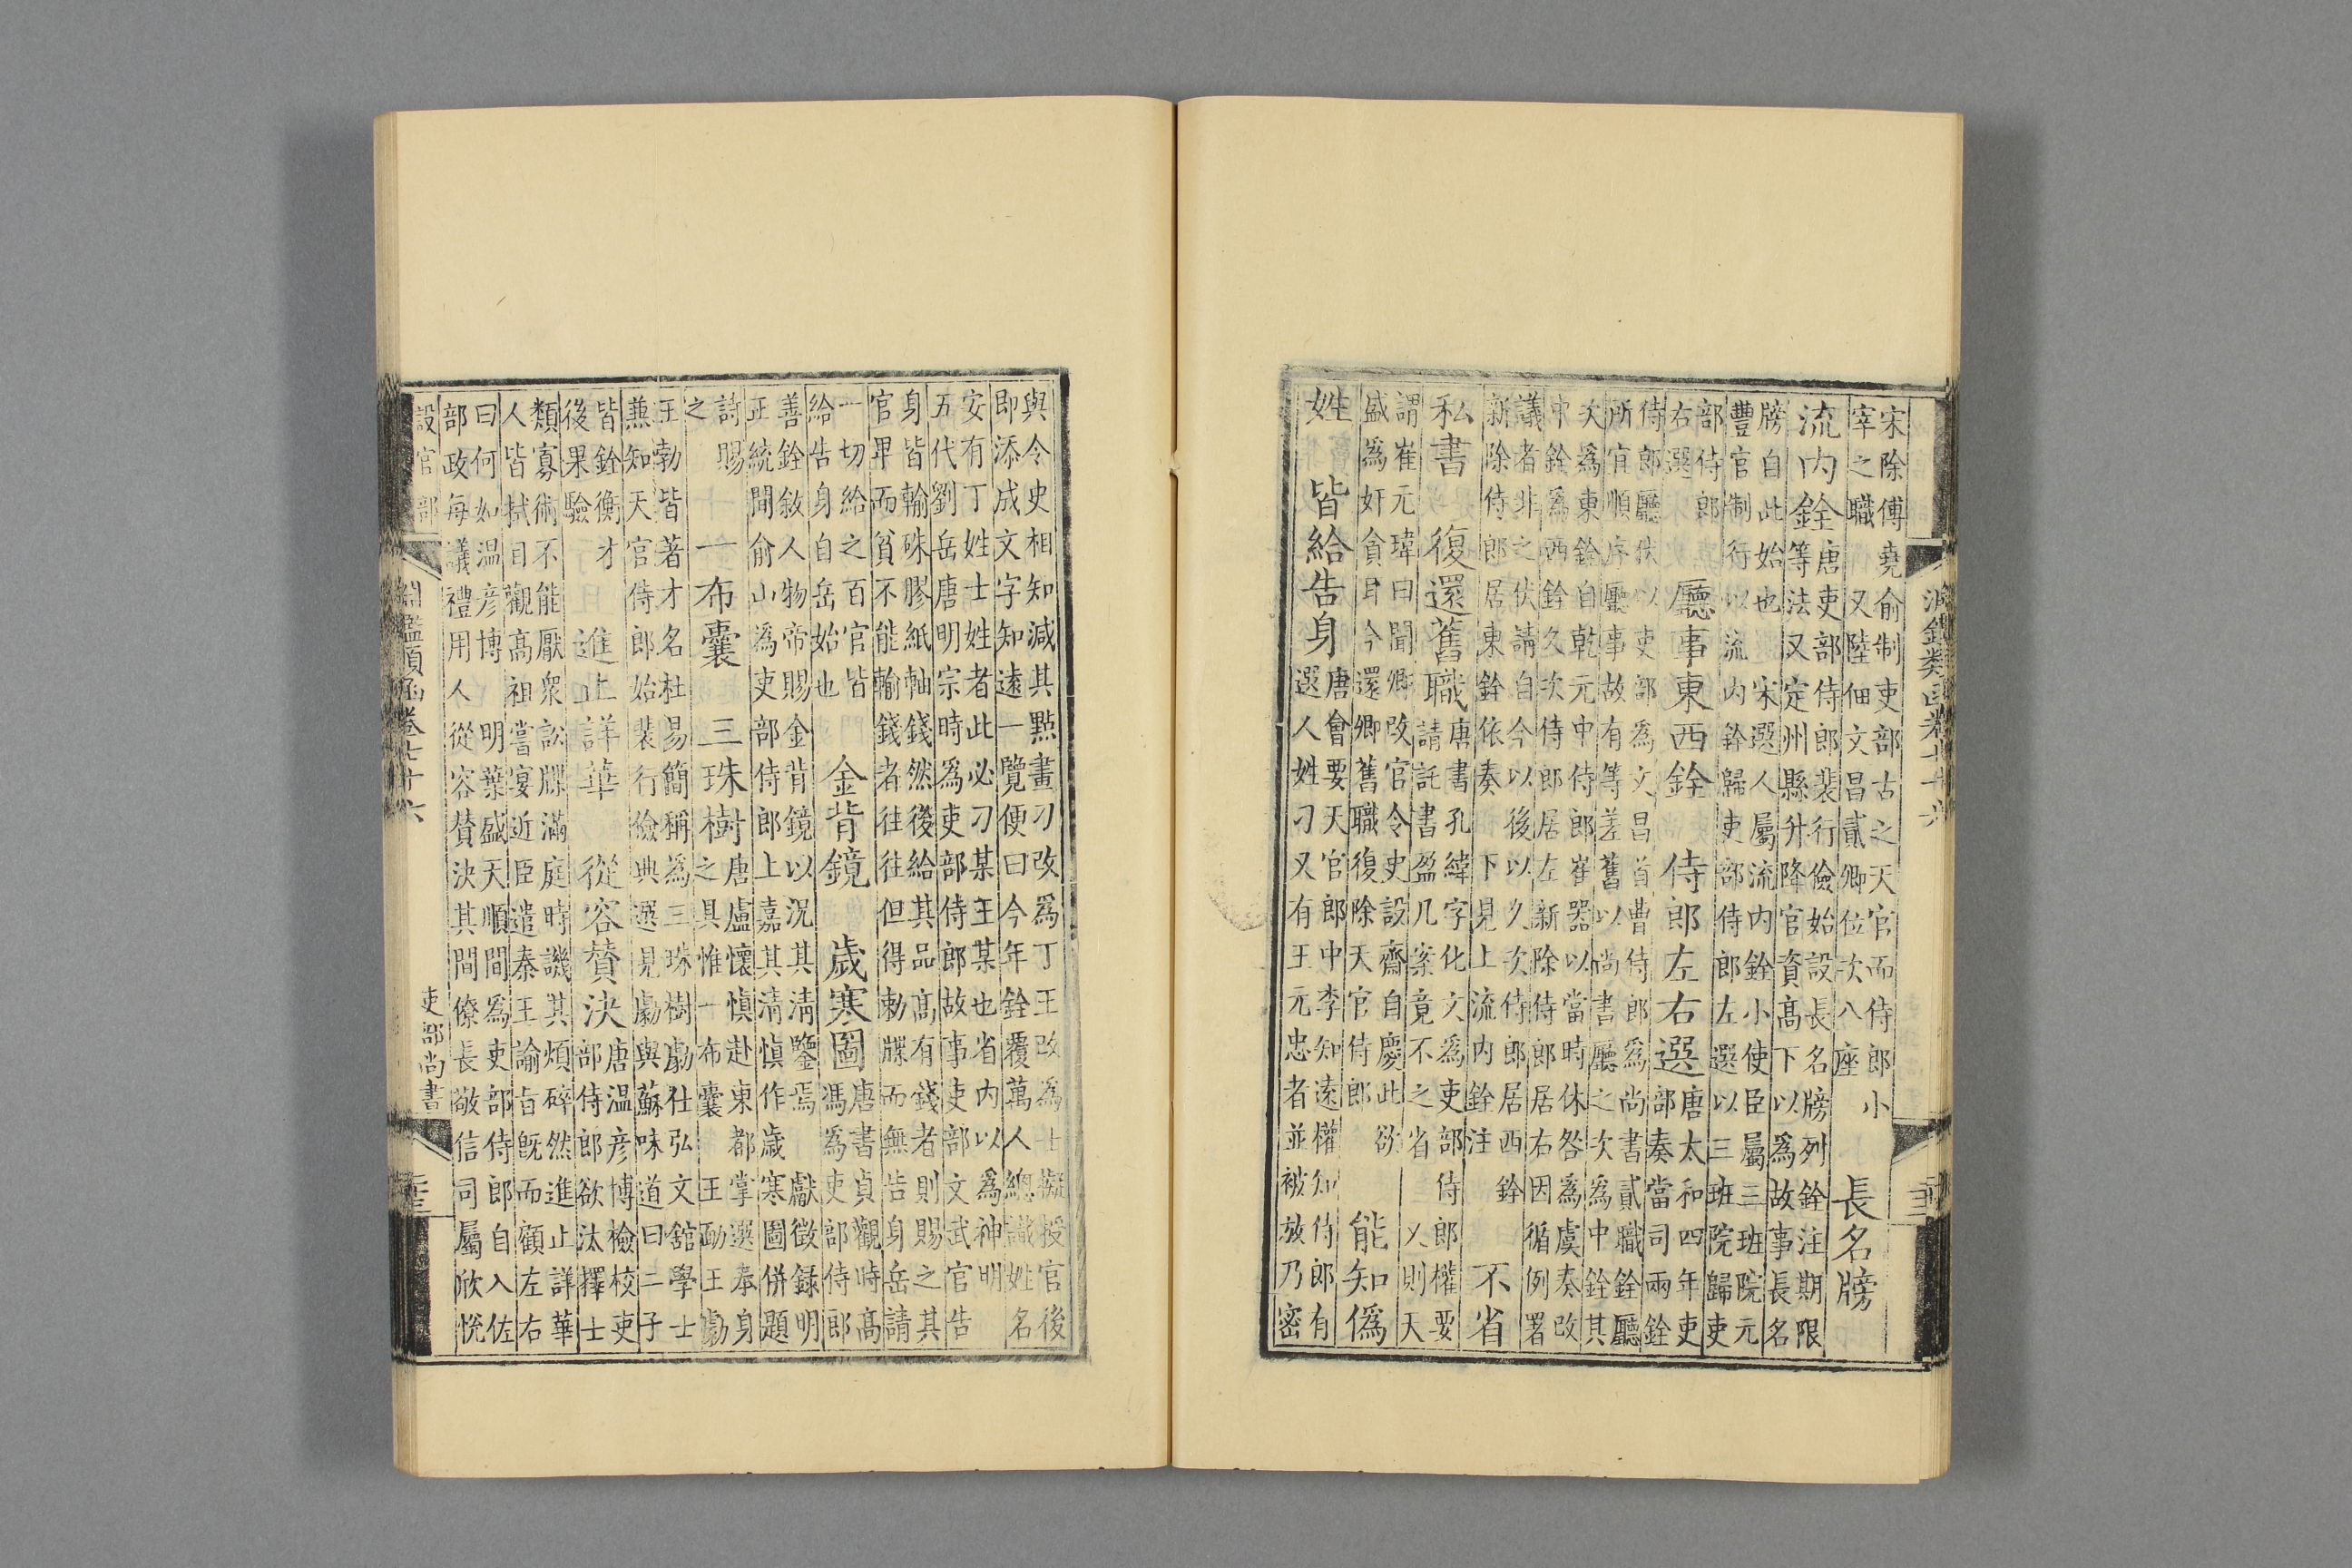 淵鑑類函卷七十六
宋除傅堯俞制吏部古之天官而侍郎小
宰之職又陸佃文昌貳卿位次八座
長名牓
流内銓
唐吏部侍郎裴行儉始設長名牓列銓注期限
等法又定州縣升降官資高下以爲故事長名
牓自此始也 宋選人屬流内銓小使臣屬三班院元
豐官制行以流内銓歸吏部侍郎左選以三班院歸吏
部侍郎
右選
廳事東西銓 侍郎左右選
唐太和四年吏
部奏當司兩銓
侍郎廳伏以吏部爲文昌首曹侍郎爲尚書貳職銓廳
所宜順序廳事故有等差舊以尚書廳之次爲中銓其
次爲東銓自乾元中侍郎崔器以當時休咎爲虞奏改
中銓爲西銓久次侍郎居左新除侍郎居右因循例署
議者非之伏請自今以後以久次侍郎居西銓
新除侍郎居東銓依奏 下見上流内銓注
不省
私書 復還舊職
唐書孔緯字化文爲吏部侍郎權要
請託書盈几案竟不之省 又則天
謂崔元瑋曰聞卿改官令史設齋自慶此欲
盛爲奸貪耳今還卿舊職復除天官侍郎
能知僞
姓 皆給告身
唐會要天官郎中李知遠權知侍郎有
選人姓刁又有王元忠者並被放乃密
與令史相知減其點畫刁改爲丁王改爲士擬授官後
即添成文字知遠一覽便曰今年銓覆萬人總識姓名
安有丁姓士姓者此必刁某王某也省内以爲神明
五代劉岳唐明宗時爲吏部侍郎故事吏部文武官告
身皆輸硃膠紙軸錢然後給其品高有錢者則賜之其
官卑而貧不能輸錢者往往但得勅牒而無告身岳請
一切給之百官皆
給告身自岳始也
金背鏡 歲寒圖
唐書貞觀時高
馮爲吏部侍郎
善銓敘人物帝賜金背鏡以況其清鑒焉 獻徵録明
正統間俞山爲吏部侍郎上嘉其清慎作歲寒圖併題
詩賜
之
一布囊 三珠樹
唐盧懷慎赴東都掌選奉身
之具惟一布囊 王勔王勮
王勃皆著才名杜易簡稱爲三珠樹勮仕弘文舘學士
兼知天官侍郎始裴行儉典選見勮與蘇味道曰二子
皆銓衡才
後果驗
進止詳華 從容贊決
唐温彦博檢校吏
部侍郎欲汰擇士
類寡術不能厭衆訟牒滿庭時譏其煩碎然進止詳華
人皆拭目觀高祖嘗宴近臣遣秦王諭旨既而顧左右
曰何如温彦博 明葉盛天順間爲吏部侍郎自入佐
部政每議禮用人從容贊決其間僚長敬信司屬欣悅
設官部
淵鑑類函卷七十六
吏部尚書